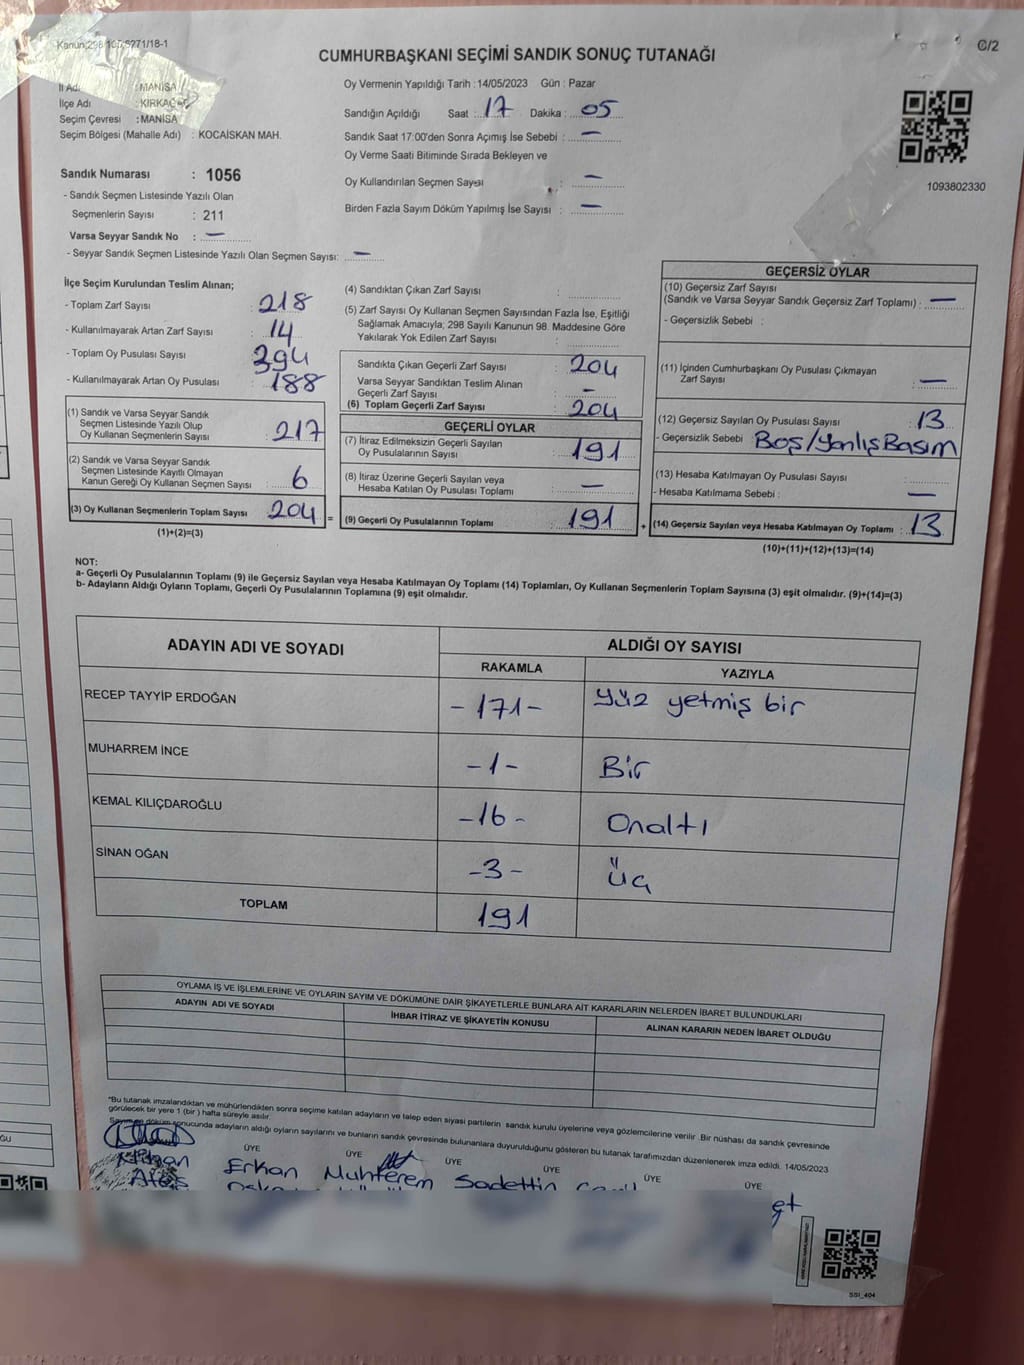 Kanun;298/105,6271/18-1
C/2
CUMHURBAŞKANI SEÇİMİ SANDIK SONUÇ TUTANAĞI
İl Adı : MANİSA
İlçe Adı : KIRKAĞ
Seçim Çevresi : MANİSA
Seçim Bölgesi (Mahalle Adı) : KOCAİSKAN MAH.
Oy Vermenin Yapıldığı Tarih : 14/05/2023 Gün : Pazar
Sandığın Açıldığı Saat : 17 Dakika : 05
Sandık Saat 17:00'den Sonra Açımış İse Sebebi : –
Oy Verme Saati Bitiminde Sırada Bekleyen ve
Oy Kullandırılan Seçmen Sayısı : –
Birden Fazla Sayım Döküm Yapılmış İse Sayısı : –
1093802330
Sandık Numarası : 1056
- Sandık Seçmen Listesinde Yazılı Olan
Seçmenlerin Sayısı : 211
Varsa Seyyar Sandık No : –
- Seyyar Sandık Seçmen Listesinde Yazılı Olan Seçmen Sayısı: –
İlçe Seçim Kurulundan Teslim Alınan;
- Toplam Zarf Sayısı : 218
- Kullanılmayarak Artan Zarf Sayısı : 14
- Toplam Oy Pusulası Sayısı : 394
- Kullanılmayarak Artan Oy Pusulası : 188
(1) Sandık ve Varsa Seyyar Sandık
Seçmen Listesinde Yazılı Olup
Oy Kullanan Seçmenlerin Sayısı : 217
(2) Sandık ve Varsa Seyyar Sandık
Seçmen Listesinde Kayıtlı Olmayan
Kanun Gereği Oy Kullanan Seçmen Sayısı : 6
(3) Oy Kullanan Seçmenlerin Toplam Sayısı 204 =
(1)+(2)=(3)
(4) Sandıktan Çıkan Zarf Sayısı :
(5) Zarf Sayısı Oy Kullanan Seçmen Sayısından Fazla İse, Eşitliği
Sağlamak Amacıyla; 298 Sayılı Kanunun 98. Maddesine Göre
Yakılarak Yok Edilen Zarf Sayısı :
Sandıkta Çıkan Geçerli Zarf Sayısı : 204
Varsa Seyyar Sandıktan Teslim Alınan
Geçerli Zarf Sayısı : –
(6) Toplam Geçerli Zarf Sayısı : 204
GEÇERLİ OYLAR
(7) İtiraz Edilmeksizin Geçerli Sayılan
Oy Pusulalarının Sayısı : 191
(8) İtiraz Üzerine Geçerli Sayılan veya
Hesaba Katılan Oy Pusulası Toplamı : –
(9) Geçerli Oy Pusulalarının Toplamı : 191 +
GEÇERSİZ OYLAR
(10) Geçersiz Zarf Sayısı
(Sandık ve Varsa Seyyar Sandık Geçersiz Zarf Toplamı) : –
- Geçersizlik Sebebi :
(11) İçinden Cumhurbaşkanı Oy Pusulası Çıkmayan
Zarf Sayısı : –
(12) Geçersiz Sayılan Oy Pusulası Sayısı : 13
- Geçersizlik Sebebi Boş/Yanlış Basım
(13) Hesaba Katılmayan Oy Pusulası Sayısı :
- Hesaba Katılmama Sebebi : –
(14) Geçersiz Sayılan veya Hesaba Katılmayan Oy Toplamı : 13
(10)+(11)+(12)+(13)=(14)
NOT:
a- Geçerli Oy Pusulalarının Toplamı (9) ile Geçersiz Sayılan veya Hesaba Katılmayan Oy Toplamı (14) Toplamları, Oy Kullanan Seçmenlerin Toplam Sayısına (3) eşit olmalıdır. (9)+(14)=(3)
b- Adayların Aldığı Oyların Toplamı, Geçerli Oy Pusulalarının Toplamına (9) eşit olmalıdır.
ADAYIN ADI VE SOYADI
ALDIĞI OY SAYISI
RAKAMLA YAZIYLA
RECEP TAYYİP ERDOĞAN -171- Yüz yetmiş bir
MUHARREM İNCE -1- Bir
KEMAL KILIÇDAROĞLU -16- Onaltı
SİNAN OĞAN -3- üç
TOPLAM 191
OYLAMA İŞ VE İŞLEMLERİNE VE OYLARIN SAYIM VE DÖKÜMÜNE DAİR ŞİKAYETLERLE BUNLARA AİT KARARLARIN NELERDEN İBARET BULUNDUKLARI
ADAYIN ADI VE SOYADI İHBAR İTİRAZ VE ŞİKAYETİN KONUSU ALINAN KARARIN NEDEN İBARET OLDUĞU
*Bu tutanak imzalandıktan ve mühürlendikten sonra seçime katılan adayların ve talep eden siyasi partilerin sandık kurulu üyelerine veya gözlemcilerine verilir .Bir nüshası da sandık çevresinde
görülecek bir yere 1 (bir ) hafta süreyle asılır.
Sayım ve döküm sonucunda adayların aldığı oyların sayılarını ve bunların sandık çevresinde bulunanlara duyurulduğunu gösteren bu tutanak tarafımızdan düzenlenerek imza edildi. 14/05/2023
ÜYE ÜYE ÜYE ÜYE ÜYE ÜYE
Erkan Muhterem Sadettin
Ateş
SSI_404